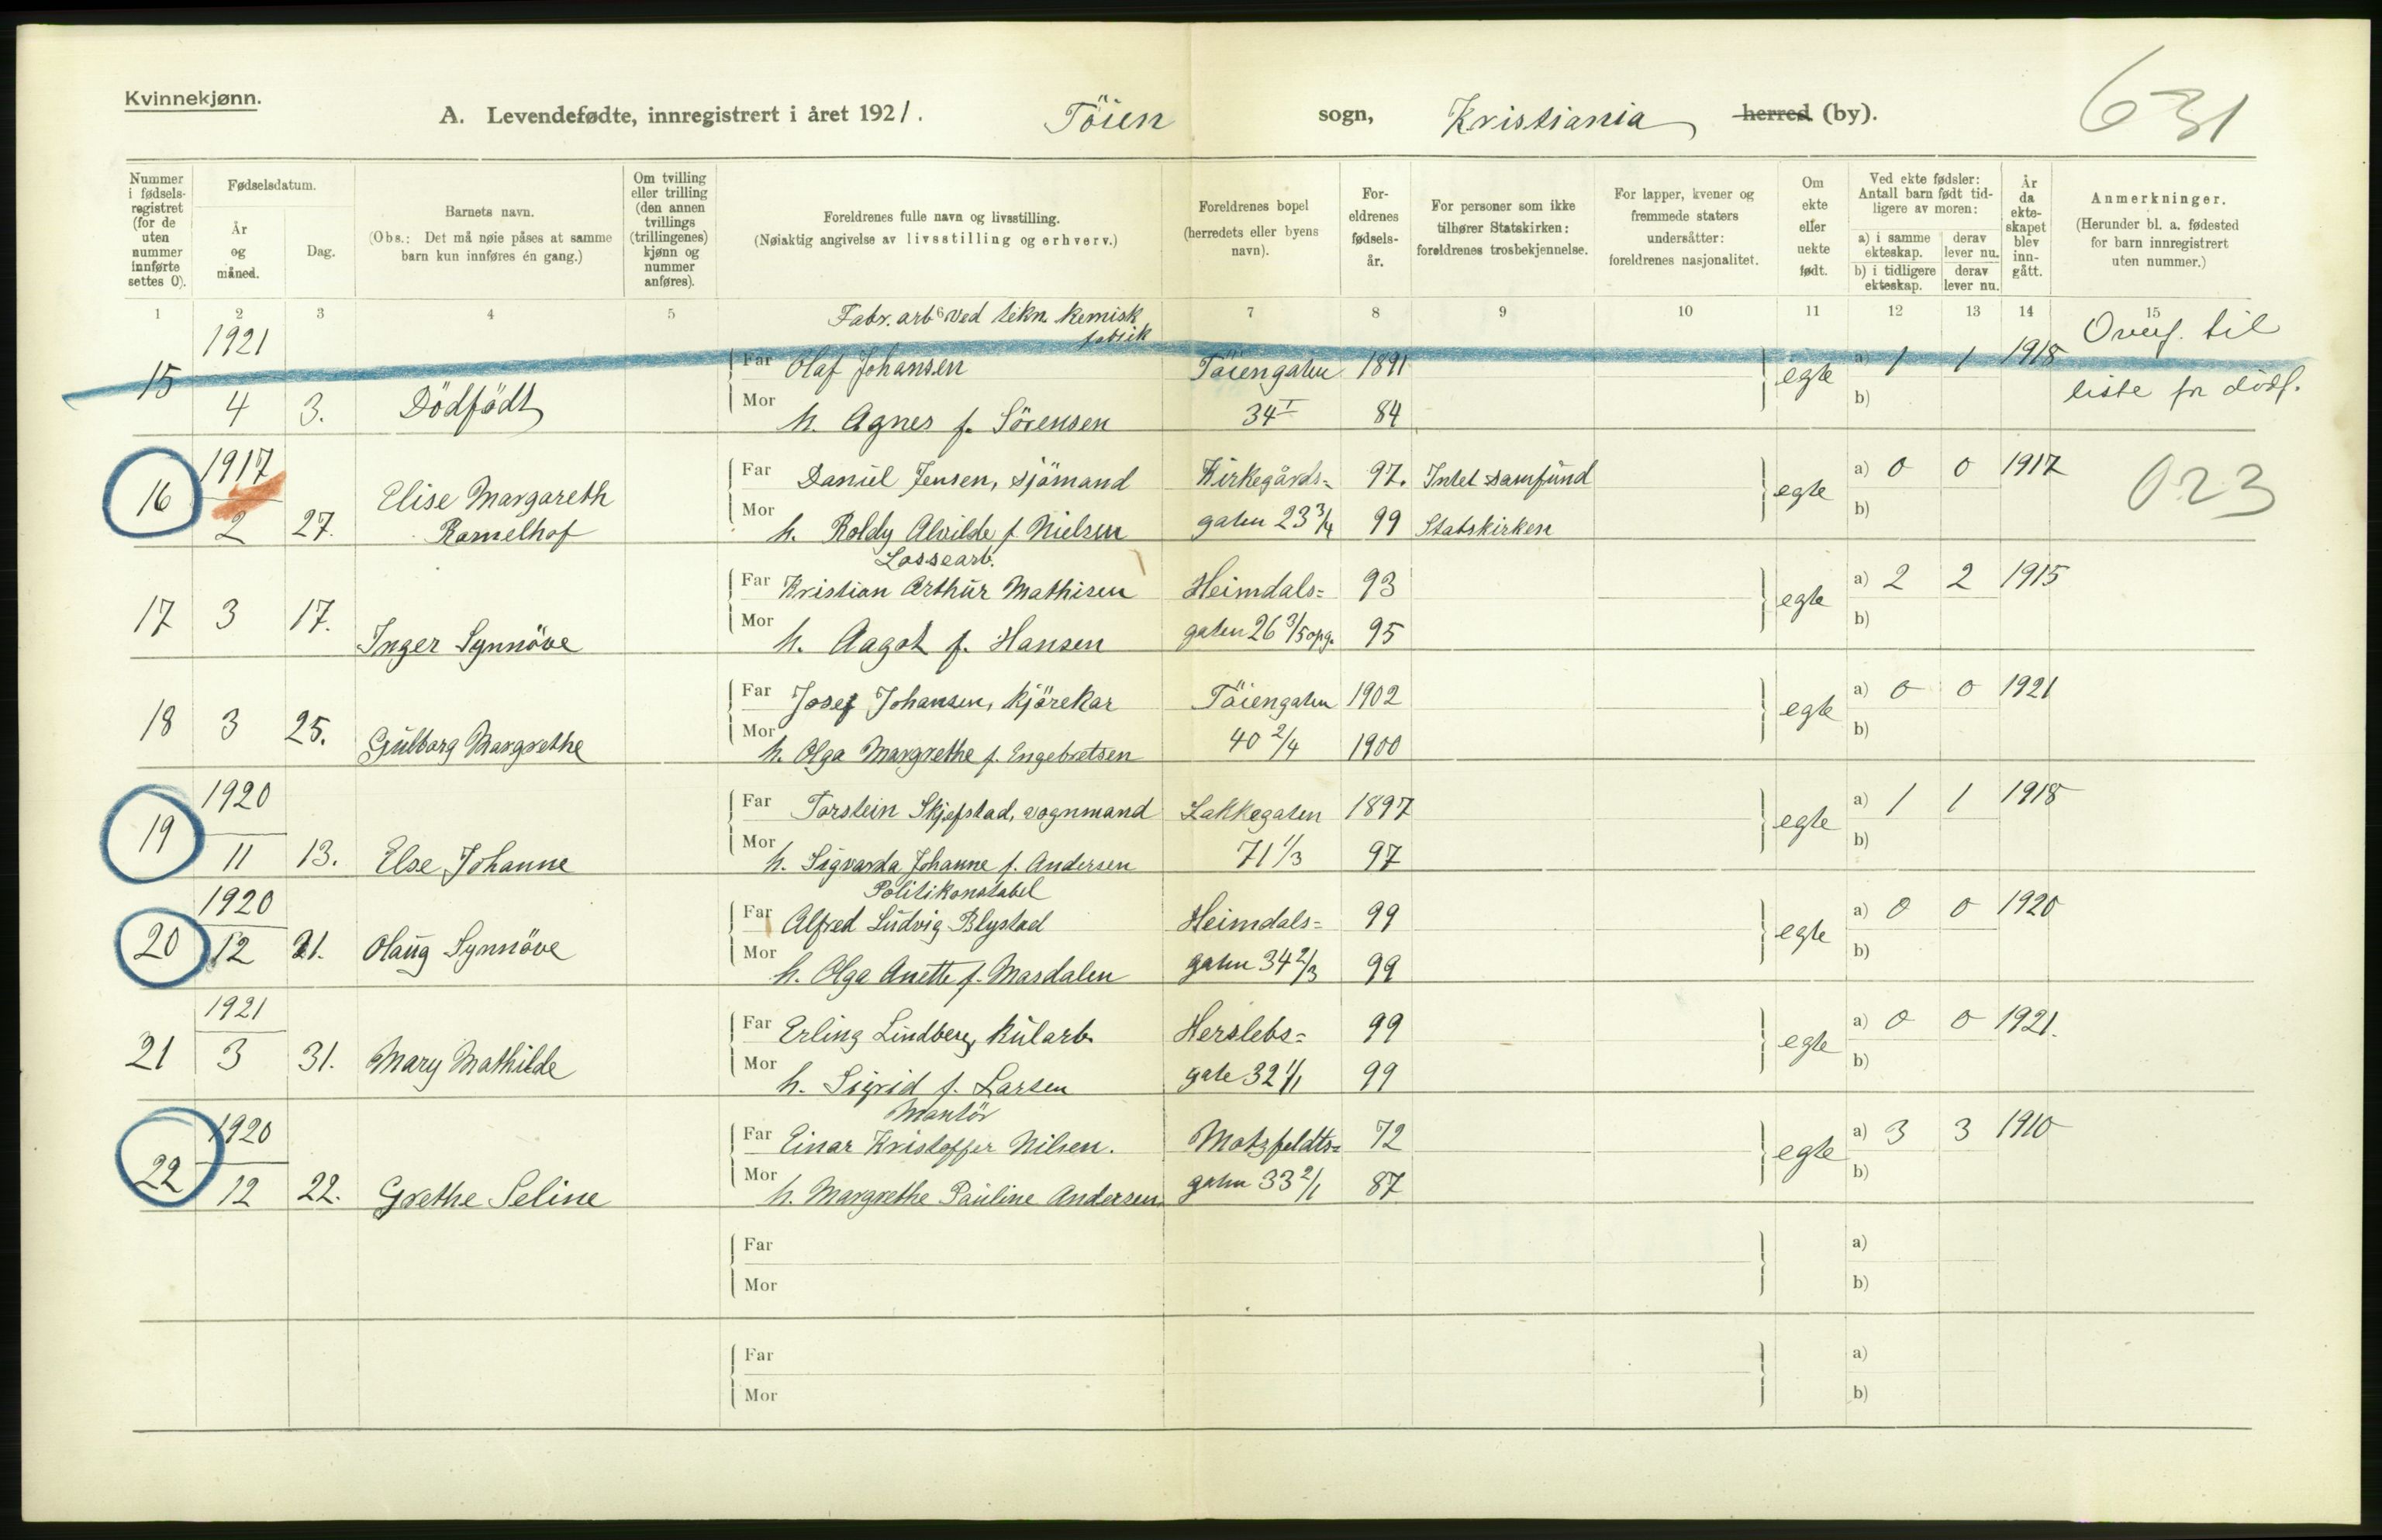 Kvinnekjønn.
631
A. Levendefødte, innregistrert i året 1921. Töien sogn, Kristiania herred (by).
Nummer i fødsels-registret (for de uten nummer innførte settes 0).
Fødselsdatum.
År og måned.
Dag.
Barnets navn.
(Obs.: Det må nøie påses at samme barn kun innføres én gang.)
Om tvilling eller trilling (den annen tvillings (trillingenes) kjønn og nummer anføres).
Foreldrenes fulle navn og livsstilling.
(Nøiaktig angivelse av livsstilling og erhverv.)
Foreldrenes bopel (herredets eller byens navn).
For-eldrenes fødsels-år.
For personer som ikke tilhører Statskirken: foreldrenes trosbekjennelse.
For lapper, kvener og fremmede staters undersåtter: foreldrenes nasjonalitet.
Om ekte eller uekte født.
Ved ekte fødsler: Antall barn født tid-ligere av moren:
a) i samme ekteskap. derav lever nu.
b) i tidligere ekteskap. derav lever nu.
År da ekte-skapet blev inn-gått.
Anmerkninger.
(Herunder bl. a. fødested for barn innregistrert uten nummer.)
1 2 3 4 5 6 7 8 9 10 11 12 13 14 15
1921 Fabr. arb. ved tekn. kemisk fabrik Overf. til
15 Far Olaf Johansen Töiengaten 1891 egte a) 1 1 1918
4 3. Dödfödt Mor h. Agnes f. Sörensen 34 I 84 b) liste for dödf.
1917
16 Far Daniel Jensen, sjömand Kirkegårds= 97. Intet samfund egte a) 0 0 1917 023
2 27. Elise Margareth Ramelhof Mor h. Boldy Alvilde f. Nielsen gaten 23 3/4 99 Statskirken b)
Lossearb.
17 3 17. Far Kristian Arthur Mathisen Heimdals= 93 egte a) 2 2 1915
Inger Synnöve Mor h. Aagot f. Hansen gaten 26 3/5 opg. 95 b)
18 3 25. Far Josef Johansen, kjörekar Töiengaten 1902 egte a) 0 0 1921
Gulborg Margrethe Mor h. Olga Margrethe f. Engebretsen 40 2/4 1900 b)
1920
19 Far Torstein Skjefstad, vognmand Lakkegaten 1897 egte a) 1 1 1918
11 13. Else Johanne Mor h. Sigvarda Johanne f. Andersen 71 1/3 97 b)
1920 Politikonstabel
20 Far Alfred Ludvig Blystad Heimdals= 99 egte a) 0 0 1920
12 21. Olaug Synnöve Mor h. Olga Anette f. Masdalen gaten 34 2/3 99 b)
1921
21 Far Erling Lindberg, kularb. Herslebs= 99 egte a) 0 0 1921.
3 31. Mary Mathilde Mor h. Sigrid f. Larsen gate 32 1/1 99 b)
1920 Montör
22 Far Einar Kristoffer Nilsen. Motzfeldts= 72 egte a) 3 3 1910
12 22. Grethe Seline Mor h. Margrethe Pauline Andersen gaten 33 2/1 87 b)
Far a)
Mor b)
Far a)
Mor b)